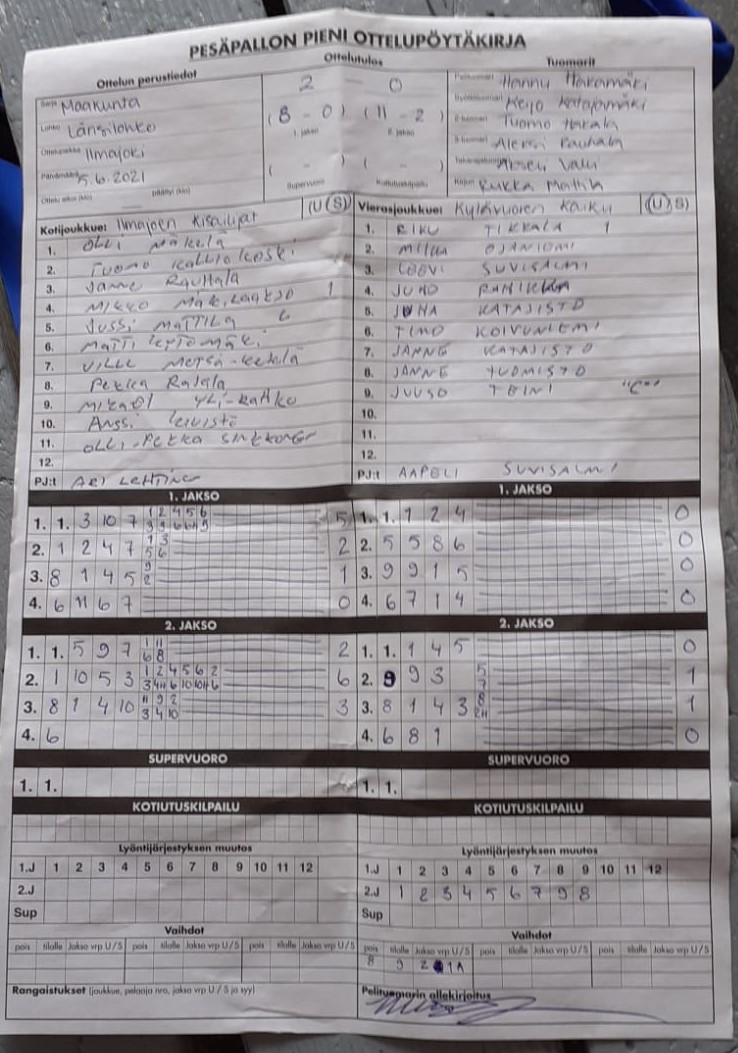 PESÄPALLON PIENI OTTELUPÖYTÄKIRJA
Ottelun perustiedot
Ottelutulos
Tuomarit
Sarja Maakunta
Lohko Länsilohko
Ottelupaikka Ilmajoki
Päivämäärä 5.6.2021
2 - 0
(8 - 0) (11 - 2)
1. jakso 2. jakso
( - ) ( - )
Supervuoro Kotiutuskilpailu
Pelituomari Hannu Hakamäki
Keijo Katajamäki
Tuomo Hakala
Aleksi Rauhala
Kirjuri Rukka Mattila
Kotijoukkue: Ilmajoen Kisailijat (U S)
1. Olli Mäkelä
2. Tuomo Kalliokoski
3. Janne Rauhala
4. Mikko Mäkilaakso 1
5. Jussi Mattila
6. Matti Leptomäki
7. Ville Metsä-Ketelä
8. Pekka Rajala
9. Mikael Yli-Rahko
10. Anssi Leivistö
11. Olli-Pekka Sinkkonen
12.
PJ:t Ari Lehtinen
Vierasjoukkue: Kylävuoren Kaiku (U S)
1. RIKU TIKKALA 1
2. MIIKA OJANIEMI
3. LEEVI SUVISALMI
4. JUHO PANIKKA
5. JUHA KATAJISTO
6. TIMO KOIVUNIEMI
7. JANNE KATAJISTO
8. JANNE TUOMISTO
9. JUUSO TEINI "C"
10.
11.
12.
PJ:t AAPELI SUVISALMI
1. JAKSO
1. 1. 3 10 7 1 2 4 5 6 5
2. 1 2 4 7 1 3 5 6 2
3. 8 1 4 5 9 2 1
4. 6 11 6 7 0
1. JAKSO
1. 1. 1 2 4 0
2. 5 5 8 6 0
3. 9 9 1 5 0
4. 6 7 1 4 0
2. JAKSO
1. 1. 5 9 7 1 11 6 8 2
2. 1 10 5 3 1 2 4 5 6 2 6
3. 8 1 4 10 11 9 2 3 4 10 3
4. 6
2. JAKSO
1. 1. 1 4 5 0
2. 9 9 3 5 7 1
3. 8 1 4 3 8 2 11 1
4. 6 8 1 0
SUPERVUORO
1. 1.
SUPERVUORO
1. 1.
KOTIUTUSKILPAILU
KOTIUTUSKILPAILU
Lyöntijärjestyksen muutos
1.J 1 2 3 4 5 6 7 8 9 10 11 12
2.J
Sup
Lyöntijärjestyksen muutos
1.J 1 2 3 4 5 6 7 8 9 10 11 12
2.J 1 2 3 4 5 6 7 9 8
Sup
Vaihdot
pois tilalle Jakso vrp U/S pois tilalle Jakso vrp U/S pois tilalle Jakso vrp U/S
Vaihdot
pois tilalle Jakso vrp U/S pois tilalle Jakso vrp U/S pois tilalle Jakso vrp U/S
8 9 2
Rangaistukset (joukkue, pelaaja nro, jakso vrp U / S ja syy)
Pelituomarin allekirjoitus